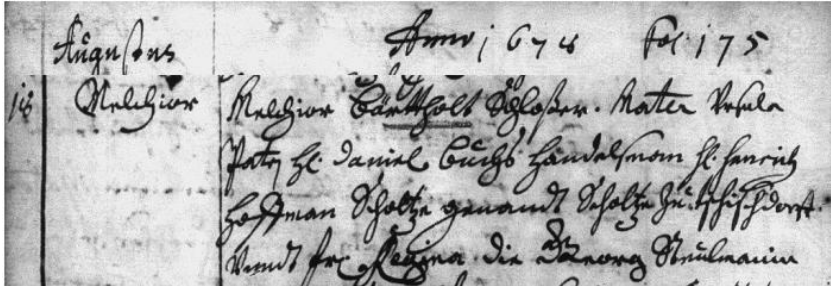 Augustus Anno 1678 Fol. 175
18 Melchior Melchior Bärttholt Schloßer. Mater Ursula
Paten H. Daniel Buchs Handelsman H. Henrich
Hoffman Scholtze genandt Scholtze zu
Vnndt Fr. Regina die George